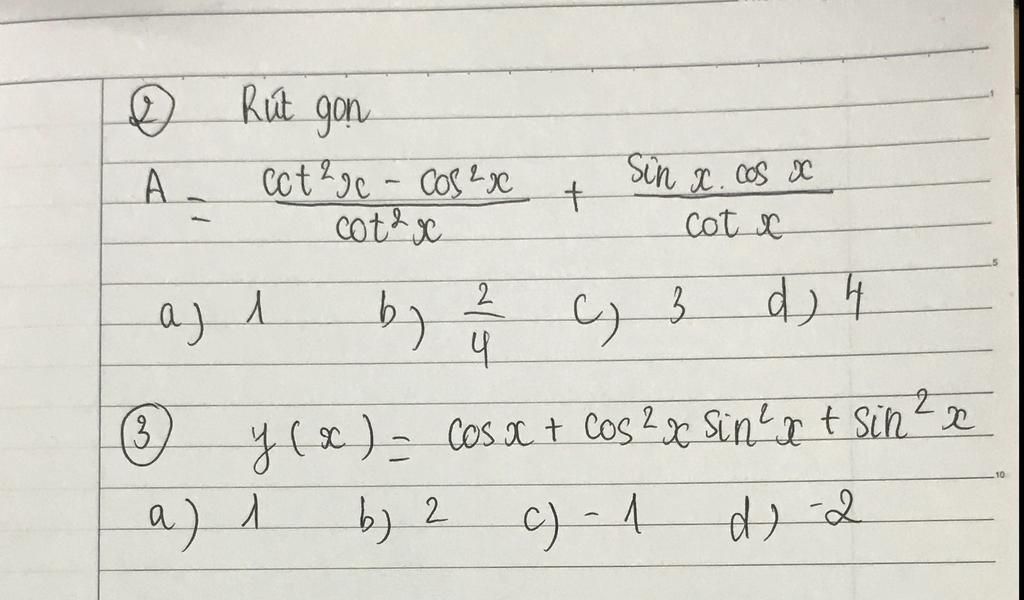 ② Rút gọn
A = \frac{cot²x - cos²x}{cot²x} + \frac{sin x. cos x}{cot x}
a) 1 b) \frac{2}{4} c) 3 d) 4
③ y(x) = cosx + cos²x sin²x + sin²x
a) 1 b) 2 c) -1 d) -2